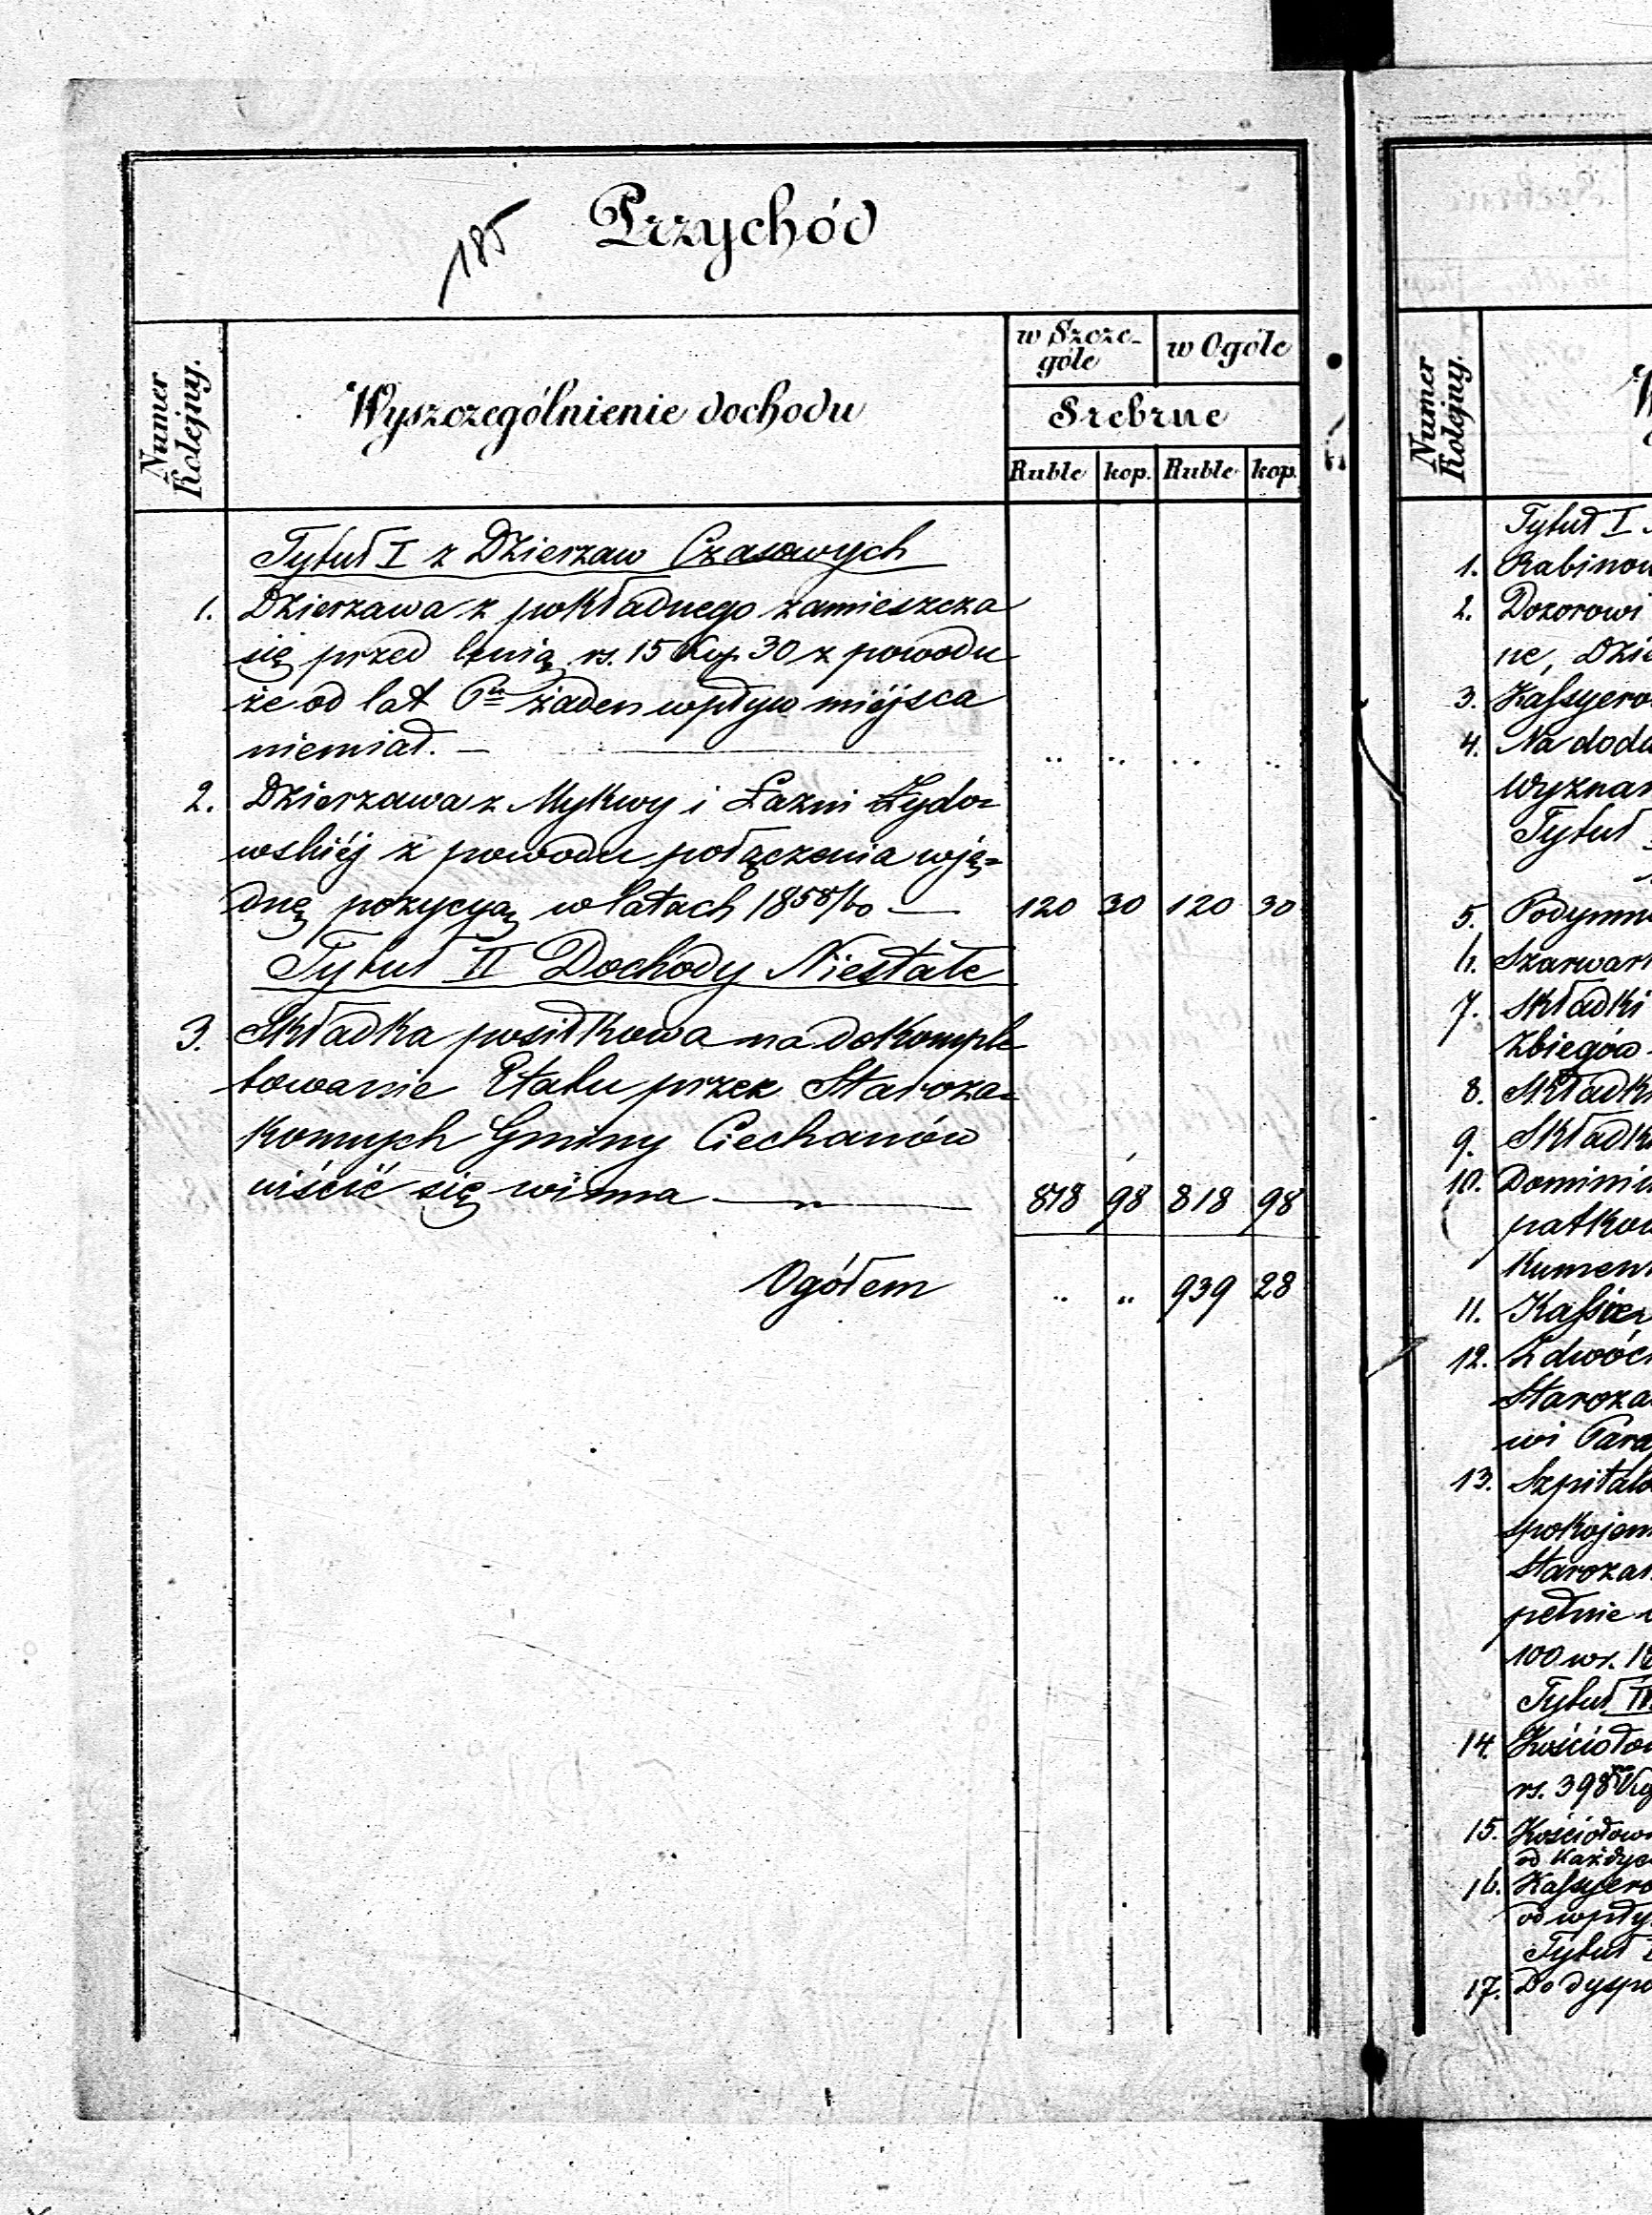 185
Przychód
Numer Kolejny.
Wyszczególnienie dochodu
w Szcze-
góle
w Ogóle
Srebrne
Ruble kop. Ruble kop.
Tytuł I z Dzierzaw Czasowych
1. Dzierzawa z pokładnego zamieszcza
się przed linią rs. 15 kop 30 z powodu
że od lat 6ciu żaden wpływ miéjsca
niemiał. —
2. Dzierzawa z Mykwy i Łazni Żydo=
wskiéj z powodu połączenia wję=
dnę pozycyą w latach 1858/60 — 120 30 120 30
Tytuł II Dochody Niestałe
3. Składka posiłkowa na dokomple
towanie Etatu przez Staroza=
konnych Gminy Ciechanów
uiścić się winna — 818 98 818 98
Ogółem " " 939 28
Numer Kolejny.
Tytuł I
1. Rabinow
2. Dozorowi
ne, Dzie
3. Kassyero
4. Na doda
Wyznan
Tytuł
5. Podymne
6. Szarwark
7. Składki
Zbiegów
8. Składki
9. Składk
10. Dominiu
patkow
kumen
11. Kassier
12. Z dwóch
Staroza
wi Para
13. Szpitalo
spokojen
Starozak
pełnie
100 ws. 18
Tytuł II
14. Kościoło
rs. 398
15. Kościołowi
od każdyc
16. Kassyero
od wpły
Tytuł
17. Do dyspo